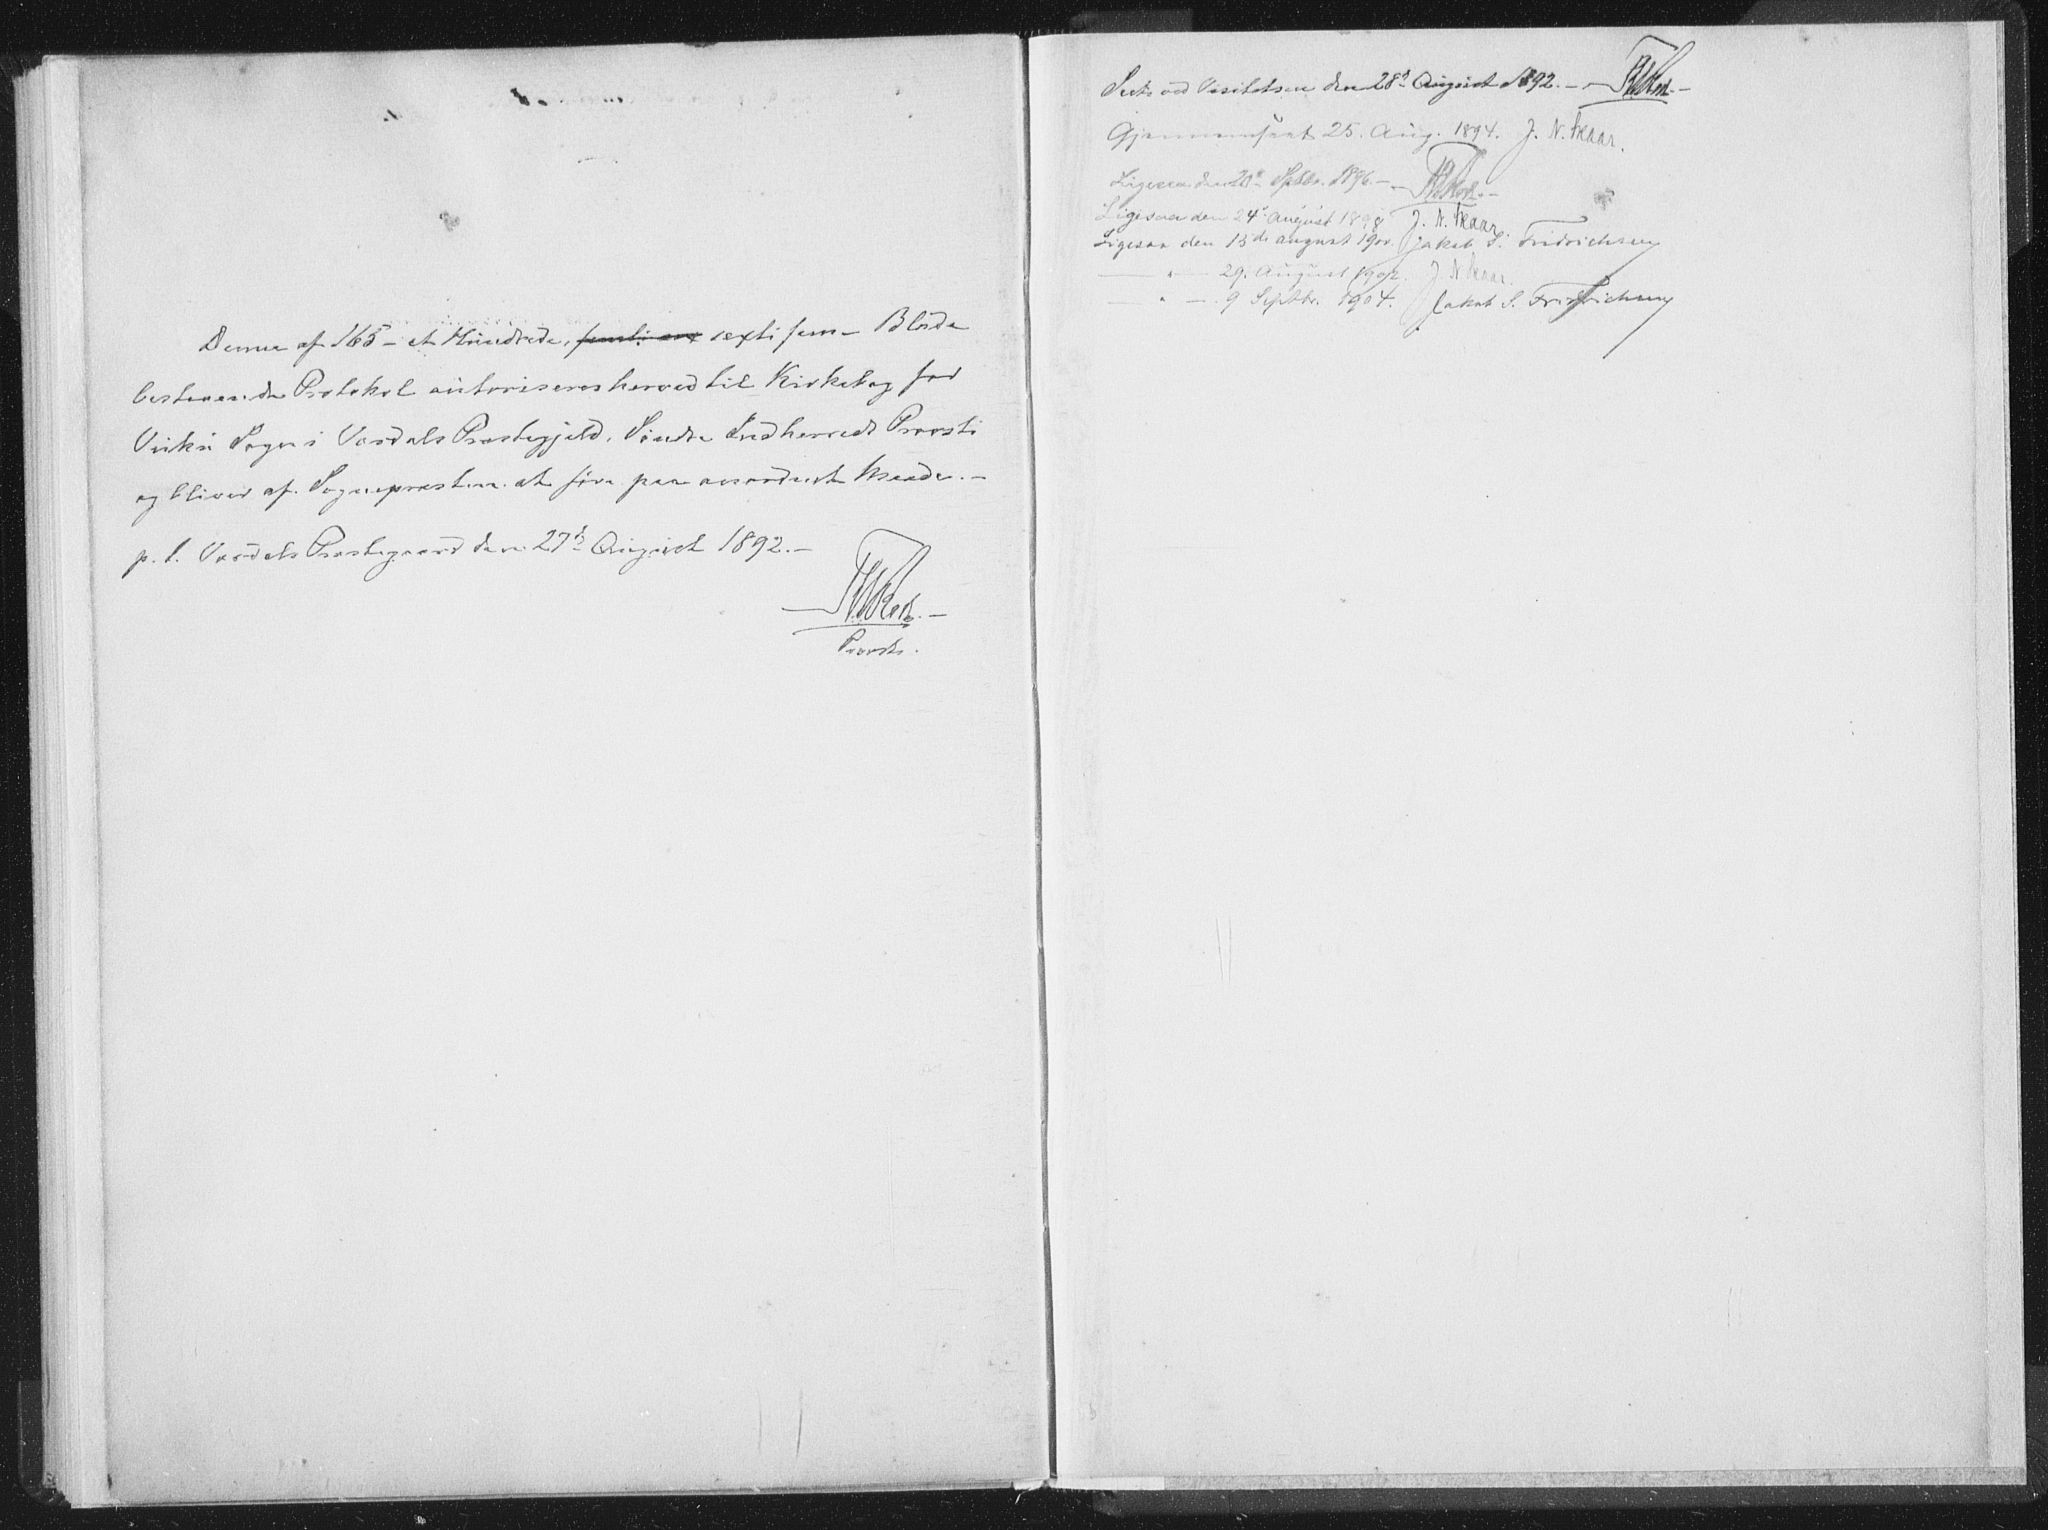 Denne af 165 – et Hundrede, sexti fem – Blade
bestaaende Protokol autoriseres herved til Kirkebog for
Sogn i Værdals Præstegjeld, Søndre Indherreds Provsti
og bliver af Sognepræsten at føre paa anordnet Maade. –
p. t. Værdals Præstegaard den 27d August 1892. –
Provst.
Seet ved Visitatsen den 28d August 1892. –
Gjennemseet 25. Aug. 1894. J. N. Skaar.
Ligesaa den Septbr. 1896. –
Ligesaa den 24d August 1898 J. N. Skaar
Ligesaa den 15de august 1900. Jakob S. Fridrichsen
— " — 29. August 1902. J. N. Skaar.
— " — 9 Septbr. 1904. Jakob S. Fridrichsen